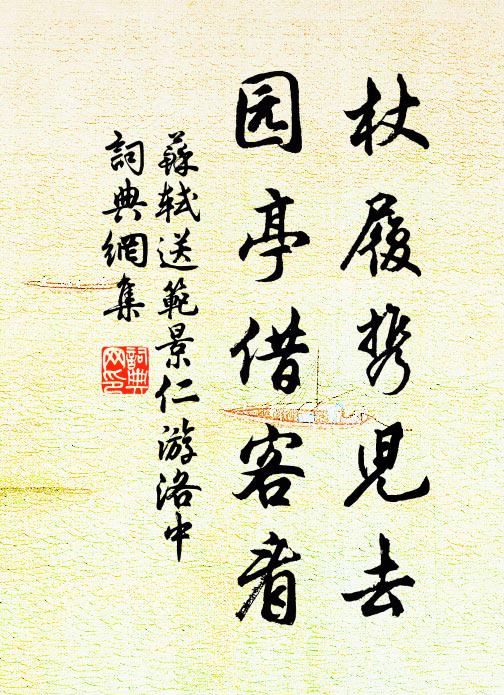 杖履携儿去
园亭借客看
蘇軾送範景仁游洛中
詞典網集
詞典网印